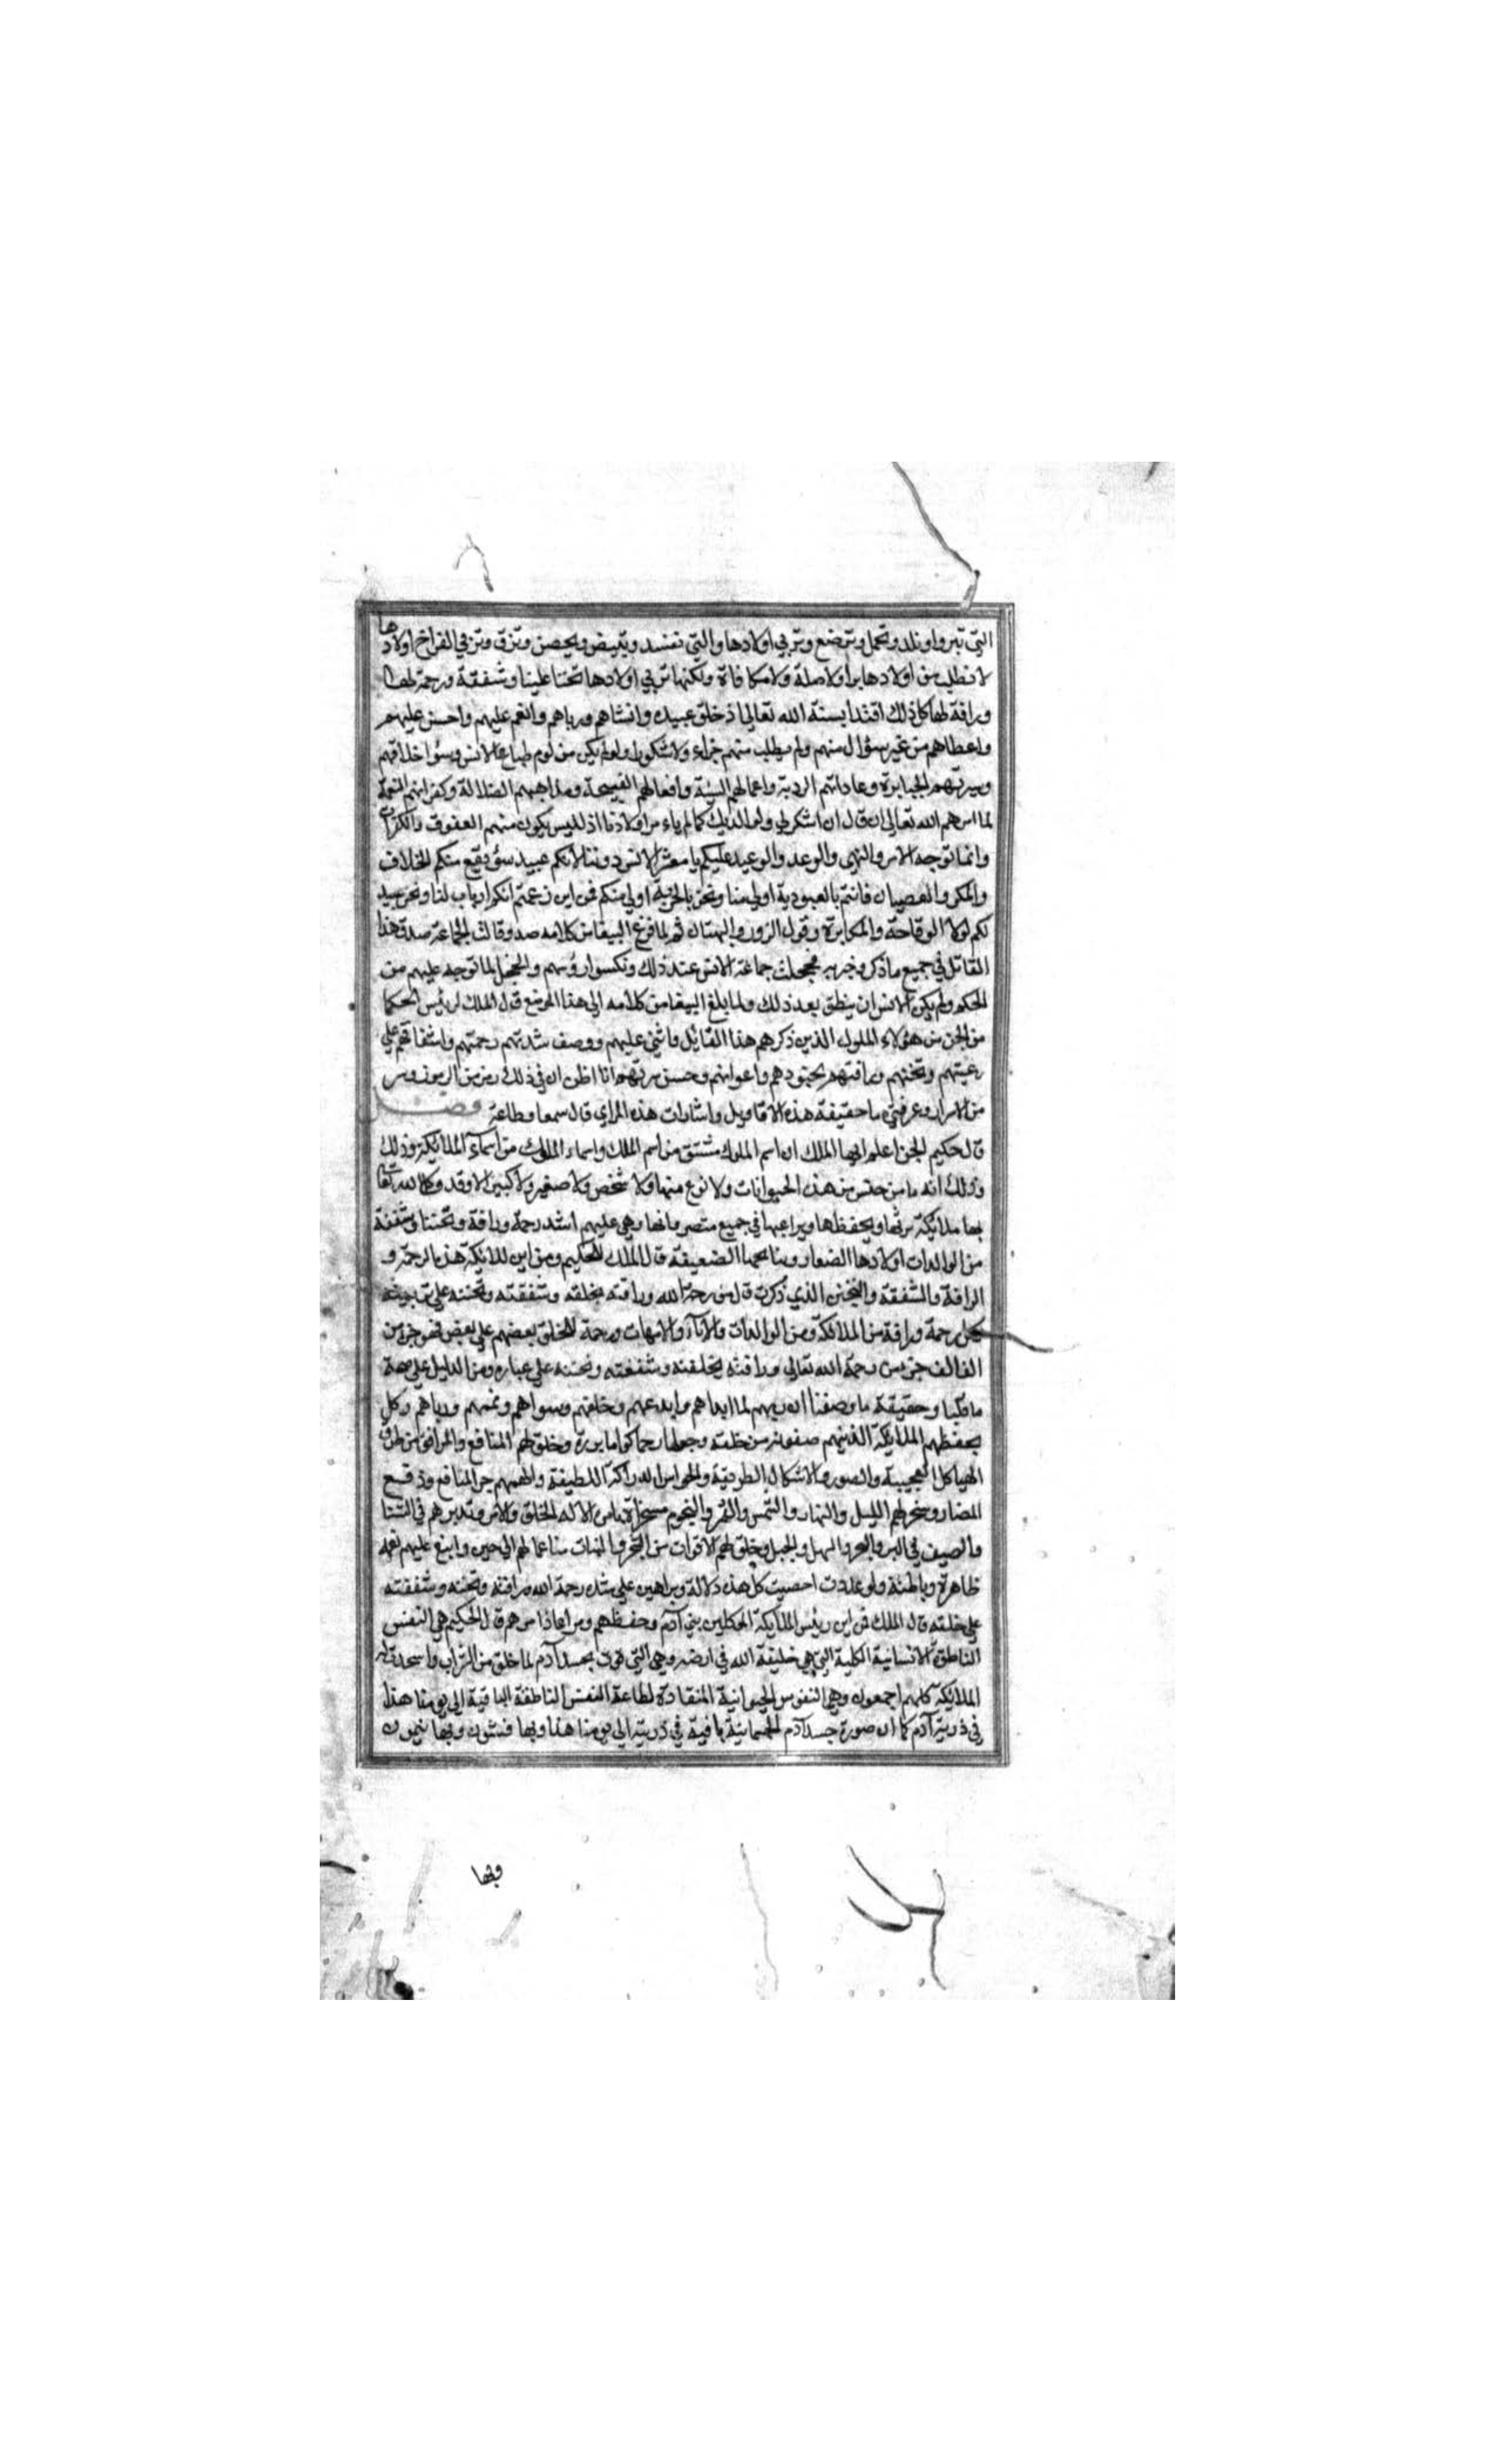 التي تنزو او تلد وتحمل وترضع وتربي اولادها والتي تفسد وتبيض وتحضن وتزق وتربي الفراخ اولادها
لا تطلب من اولادها برا ولا صلة ولا مكافاة ولكنها تربي اولادها تحننا عليها وشفقة ورحمة لها
ورافة لها كل ذلك اقتدا بسنة الله تعالى اذ خلق عبيده وانشاهم ورباهم وانعم عليهم واحسن عليهم
واعطاهم من غير سؤال منهم ولم يطلب منهم جزاء ولا شكورا ولو لم يكن من لوم طباع الانس وسؤ اخلاقهم
وسيرتهم الجبايرة وعاداتهم الردية واعمالهم السيئة وافعالهم القبيحة ومذاهبهم الضلالة وكفرانهم النعمة
لما امرهم الله تعالى ان قال ان اشكر لي ولوالديك كما لم ياء مر اولادنا اذ ليس يكون منهم العقوق والكفران
وانما توجه الامر والنهى والوعد والوعيد عليكم يا معشر الانس دوننا لانكم عبيد سؤ يقع منكم الخلاف
والمكر والعصيان فانتم بالعبودية اولى منا ونحن بالحرية اولي منكم فمن اين زعمتم انكم ارباب لنا ونحن عبيد
لكم لولا الوقاحة والمكابرة وقول الزور والبهتان ثم لما فرغ الببغا من كلامه صدوقالت الجماعة صدق هذا
القائل في جميع ما ذكر وخبر به فخجلت جماعة الانس عند ذلك ونكسوا رؤسهم والخجل لما توجه عليهم من
الحكم ولم يكن الانس ان ينطق بعد ذلك ولما بلغ الببغا من كلامه الى هذا الموضع قال الملك لرئيس الحكما
من الجن من هؤلاء الملوك الذين ذكرهم هذا القائل واثني عليهم ووصف شدتهم رحمتهم واشفاقهم علي
رعيتهم وتحننهم ورافتهم بجنودهم واعوانهم وحسن سرتهم انا اظن ان في ذلك رمز من الرموز وسر
من الاسرار وعرفني ما حقيقة هذه الاقاويل واشارات هذه المراي قال سمعا وطاعة فصل
قال حكيم الجن اعلم ايها الملك ان اسم الملوك مشتق من اسم الملك واسماء الملوك من اسماء الملائكة وذلك
وذلك انه ما من جنس من هذه الحيوانات ولا نوع منها ولا شخص ولا صغير ولا كبير الا وقد وكل الله تعالى
بها ملايكة تربيها ويحفظها ويراعيها في جميع متصرفاتها وهي عليهم اشد رحمة ورافة وتحننا وشفقة
من الوالدات اولادها الصغار وبناتهما الضعيفة قال الملك للحكيم ومن اين للملايكة هذه الرحمة و
الرافة والشفقة والتحنن الذي ذكرت قال من رحمة الله ورافته بخلقه وشفقته وتحننه علي
كل رحمة ورافة من الملائكة ومن الوالدات والآباء والامهات ورحمة للخلق بعضهم علي بعض فهو جز من
الف الف جز من رحمة الله تعالى ورافته بخلقه وشفقته وتحننه على عباده ومن الدليل علي صحة
ما قلنا وحقيقة ما وصفنا ان ربهم لما ابداهم وابدعهم وخلقهم وسواهم وتممهم ورباهم وكل
بحفظهم الملايكة الذينهم صفوته من خلقه وجعلها رحما كراما بررة وخلق لهم المنافع والمرافق من طرف
الهياكل العجيبة والصور والاشكال الطريفة والحواس الدراكة اللطيفة والهمهم جر المنافع ودفع
المضار وسخر لهم الليل والنهار والشمس والقمر والنجوم مسخرات بامره الا له الخلق والامر وتدبرهم في الشتا
والصيف في البر والبحر والسهل والجبل وخلق لهم الاقوات من الشجر والنبات متاعا لهم الي حين واسبغ عليهم نعمه
ظاهرة وباطنة ولو عددت احصيت كل هذه دلالة وبراهين علي شدة رحمة الله ورافته وتحننه وشفقته
علي خلقه قال الملك فمن اين رئيس الملايكة الموكلين ببني آدم وحفظهم ومراعاة امرهم قال الحكيم هي النفس
الناطقة الانسانية الكلية التي هي خليفة الله في ارضه وهي التي قرنت بجسد آدم لما خلق من التراب واسجدت له
الملايكة كلهم اجمعون وهي النفوس الحيوانية المنقادة لطاعة النفس الناطقة الباقية الي يومنا هذا
في ذرية آدم كما ان صورة جسد آدم الجسمانية باقية في ذريته الي يومنا هذا وبها ينشون وبها ينمون
وبها